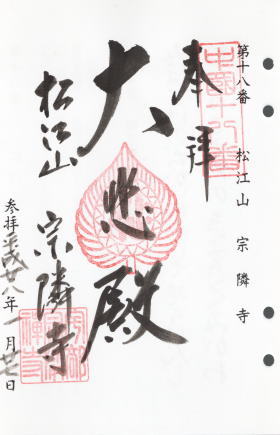 第十八番　松江山　宗隣寺
奉拝
大悲殿
松江山　宗隣寺
参拝平成廿八年一月廿七日